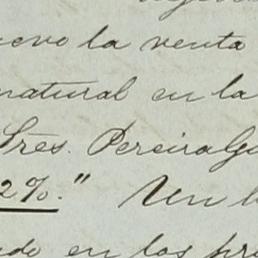 evo la venta
natural en la
Sres. Pereira Ga
2%." Un l
do en los pr